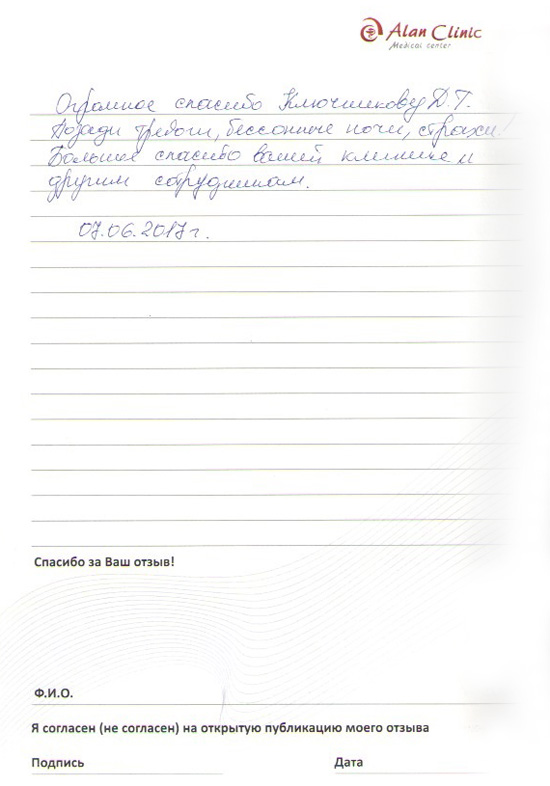 Alan Clinic
Medical center
Огромное спасибо Ключникову Д.Т.
Позади тревоги, бессонные ночи, страхи!
Большое спасибо вашей клинике и
другим сотрудникам.
07.06.2017г.
Спасибо за Ваш отзыв!
Ф.И.О.
Я согласен (не согласен) на открытую публикацию моего отзыва
Подпись Дата